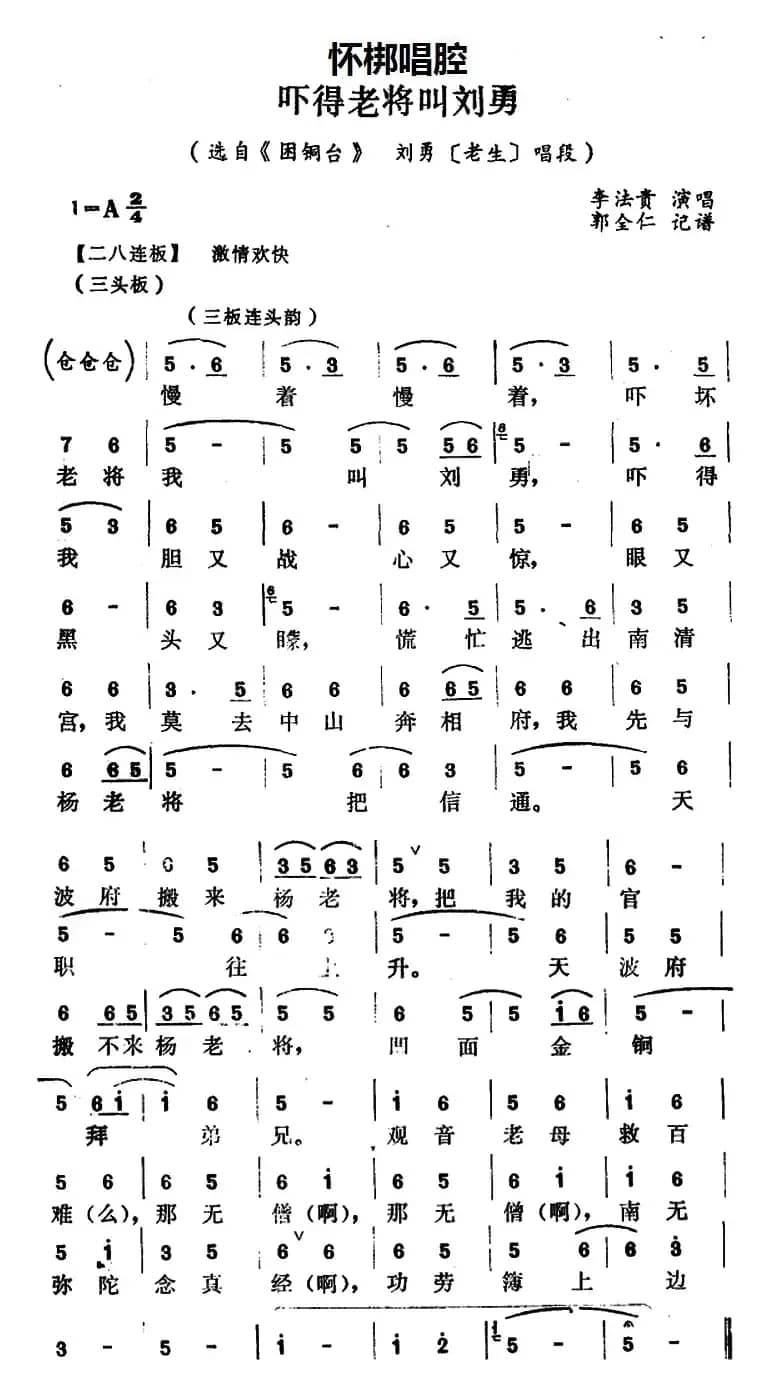 怀梆唱腔
吓得老将叫刘勇
(选自《困铜台》 刘勇〔老生〕唱段)
1=A 2/4
李法贵 演唱
郭全仁 记谱
【二八连板】 激情欢快
(三头板)
(三板连头韵)
(仓仓仓) | 5 · 6 | 5 · 3 | 5 · 6 | 5 · 3 | 5 · 5 |
慢 着 慢 着, 吓 坏
7 6 | 5 - | 5 5 | 5 5 6 | 6 5 - | 5 · 6 |
老 将 我 叫 刘 勇, 吓 得
5 3 | 6 5 | 6 - | 6 5 | 5 - | 6 5 |
我 胆 又 战 心 又 惊, 眼 又
6 - | 6 3 | 6 5 - | 6 · 5 | 5 · 6 | 3 5 |
黑 头 又 曚, 慌 忙 逃 出 南 清
6 6 | 3 · 5 | 6 6 | 6 6 5 | 6 6 | 6 5 |
宫, 我 莫 去 中 山 奔 相 府, 我 先 与
6 6 5 | 5 - | 5 6 | 6 3 | 5 - | 5 6 |
杨 老 将 把 信 通。 天
6 5 | 6 5 | 3 5 6 3 | 5 ∨ 5 | 3 5 | 6 - |
波 府 搬 来 杨 老 将, 把 我 的 官
5 - | 5 6 | 6 | 5 - | 5 6 | 5 5 |
职 往 上 升。 天 波 府
6 6 5 | 3 5 6 5 | 5 5 | 6 5 | 5 i 6 | 5 - |
搬 不 来 杨 老 将, 凹 面 金 锏
5 6 i | i 6 | 5 - | i 6 | 5 6 | i 6 |
拜 弟 兄。 观 音 老 母 救 百
5 6 | 6 5 | 6 i | 6 5 | 6 i | i 6 |
难(么), 那 无 僧(啊), 那 无 僧(啊), 南 无
5 i | 3 5 | 6 ∨ 6 | 6 5 | 5 6 | 6 3 |
弥 陀 念 真 经(啊), 功 劳 簿 上 边
3 - | 5 - | i - | i 2 | i 5 - | 5 - ‖